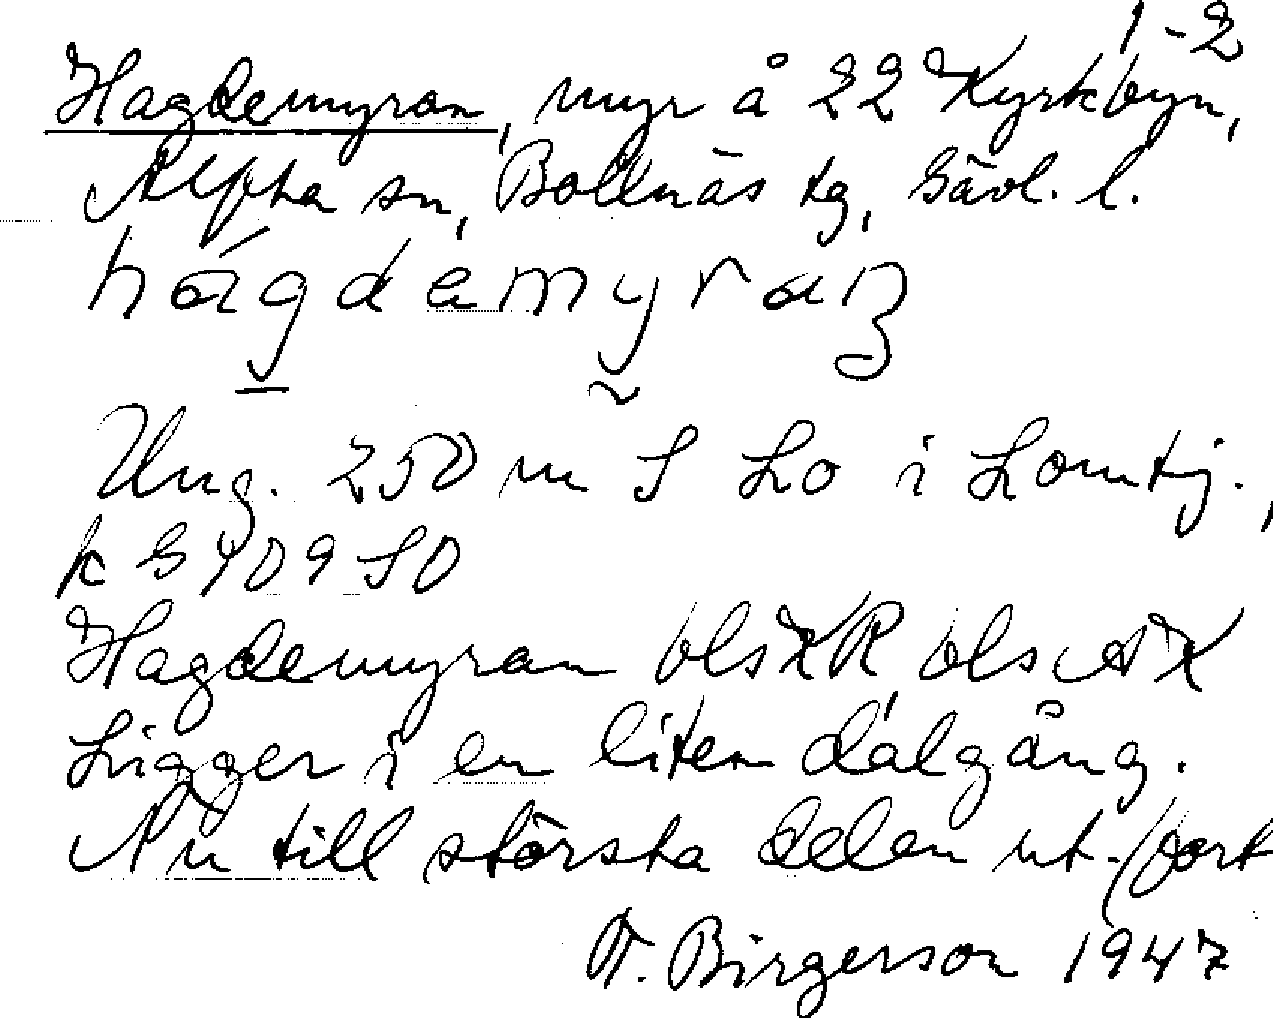 1-2
Hagdemyran, myr å 22 Kyrkbyn,
Alfta sn, Bollnäs tg, Gävl. l.
hágdemyraŋ
Ung. 250 m S Lo i Lomtj.,
k G 409 SO
Hagdemyran
Ligger i en liten dalgång.
Nu till största delen ut- (bort
T. Birgerson 1947